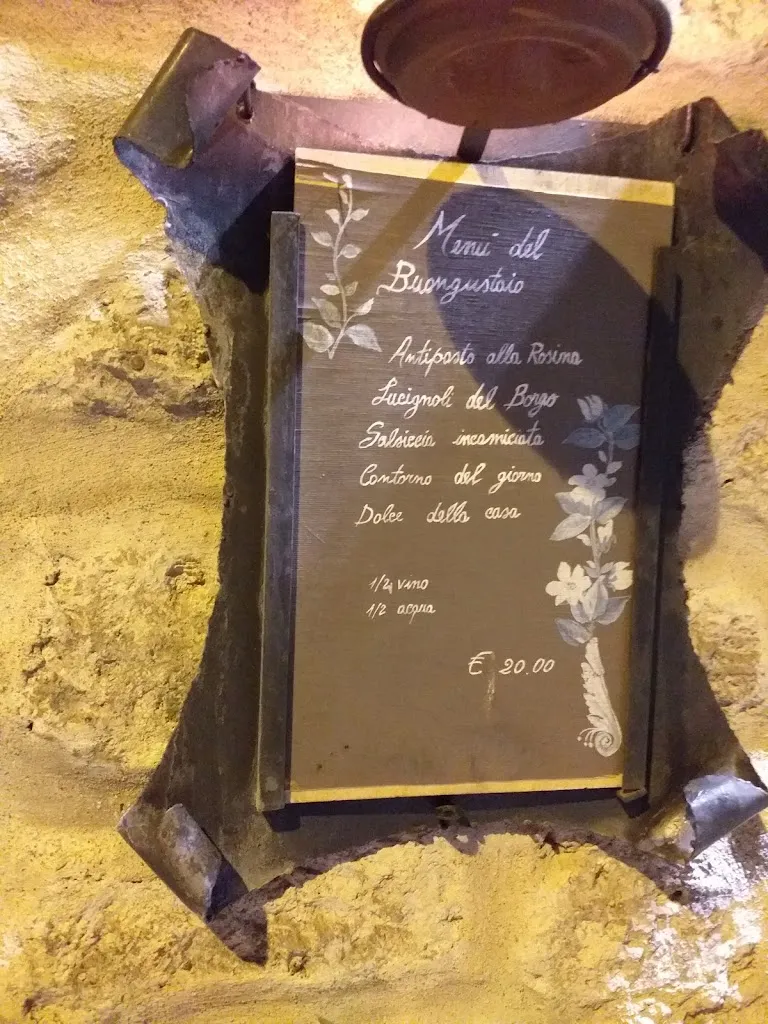 Menù del
Buongustaio
Antipasto alla Rosina
Lucignoli del Borgo
Salsiccia incamiciata
Contorno del giorno
Dolce della casa
1/4 vino
1/2 acqua
€ 20.00